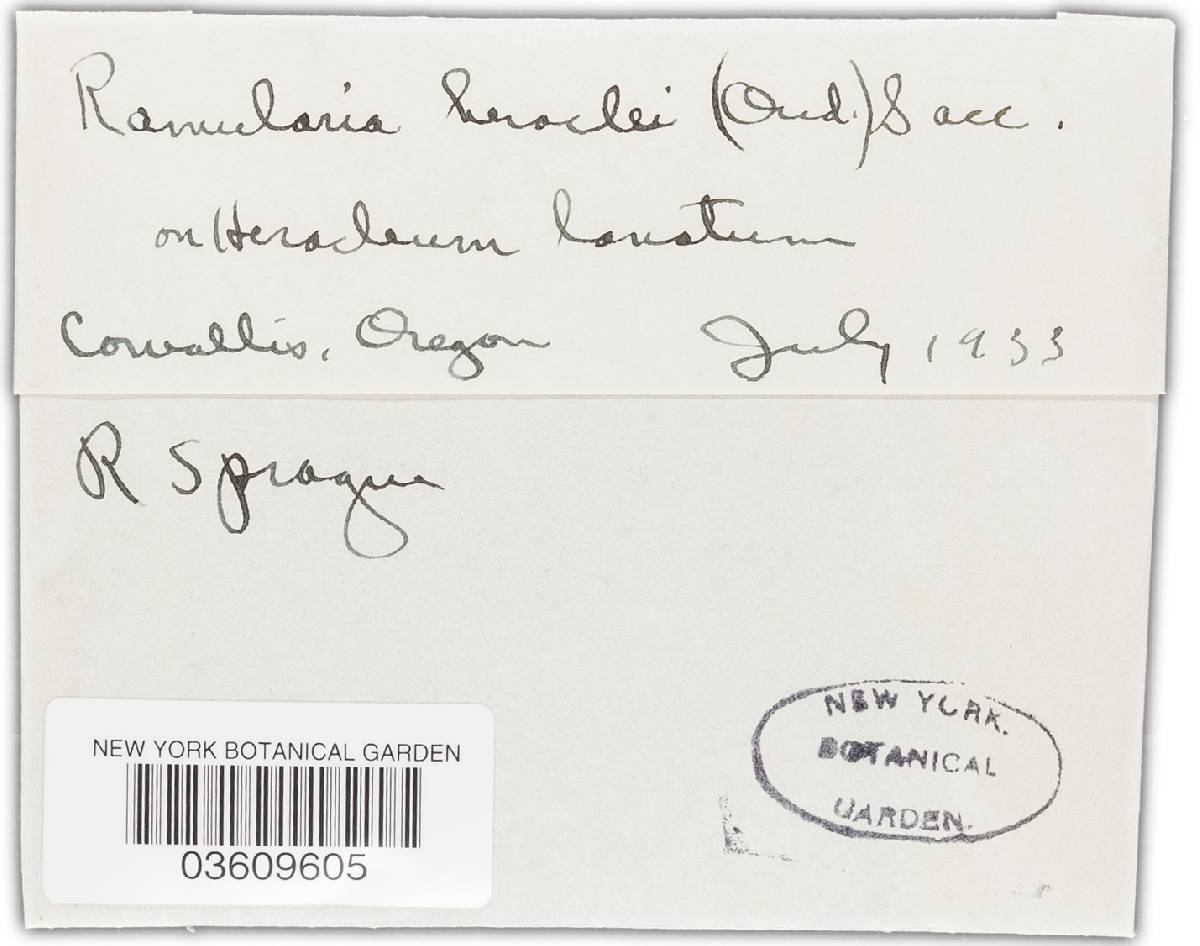 Ramularia heraclei (Oud.) Sacc.
on Heracleum lanatum
Corvallis, Oregon July 1933
R Sprague
NEW YORK BOTANICAL GARDEN
03609605
NEW YORK.
BOTANICAL
GARDEN.